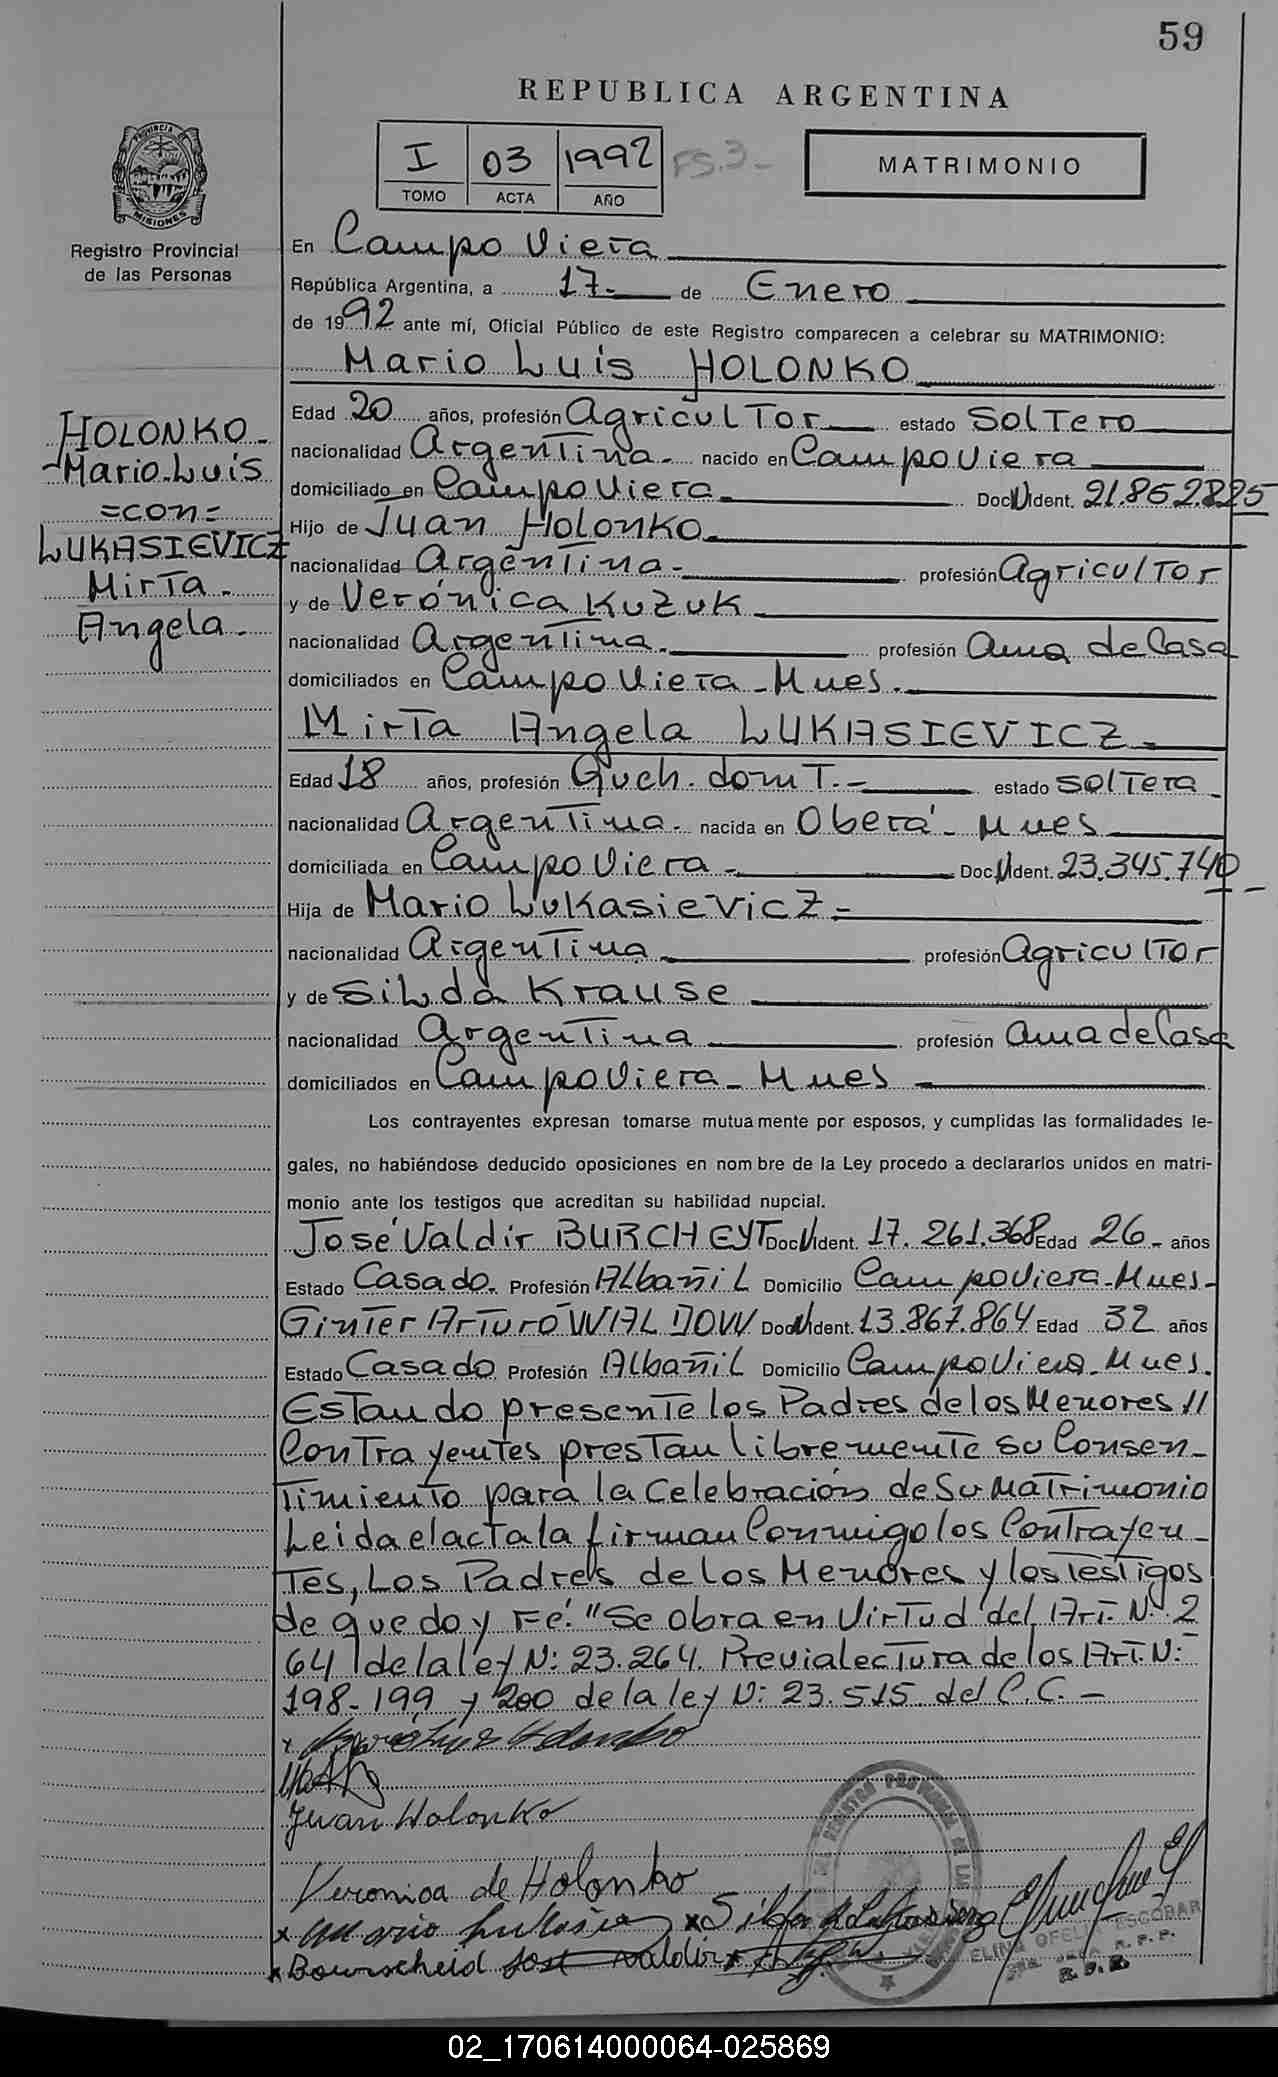 59
REPUBLICA ARGENTINA
PROVINCIA DE
MISIONES
Registro Provincial
de las Personas
I 03 1992 FS.3-
TOMO ACTA AÑO
MATRIMONIO
En Campo Viera
República Argentina, a 17.- de Enero
de 1992 ante mí, Oficial Público de este Registro comparecen a celebrar su MATRIMONIO:
Mario Luis HOLONKO
HOLONKO-
-Mario-Luis
=con=
LUKASIEVICZ
Mirta-
Angela-
Edad 20 años, profesión Agricultor estado Soltero
nacionalidad Argentina- nacido en Campo Viera
domiciliado en Campo Viera Doc. Ident. 21.862.825
Hijo de Juan Holonko
nacionalidad Argentina- profesión Agricultor
y de Verónica Kuzuk
nacionalidad Argentina- profesión Ama de Casa
domiciliados en Campo Viera-Mnes.
Mirta Angela LUKASIEVICZ-
Edad 18 años, profesión Queh. domt.- estado Soltera-
nacionalidad Argentina- nacida en Oberá- Mnes
domiciliada en Campo Viera- Doc. Ident. 23.345.740-
Hija de Mario Lukasievicz-
nacionalidad Argentina profesión Agricultor
y de Silda Krause
nacionalidad Argentina profesión Ama de Casa
domiciliados en Campo Viera-Mnes
Los contrayentes expresan tomarse mutuamente por esposos, y cumplidas las formalidades le-
gales, no habiéndose deducido oposiciones en nombre de la Ley procedo a declararlos unidos en matri-
monio ante los testigos que acreditan su habilidad nupcial.
José Valdir BURCHEYT Doc. Ident. 17.261.368 Edad 26- años
Estado Casado. Profesión Albañil Domicilio Campo Viera-Mnes-
Ginter Arturo WALDOW Doc. Ident. 13.867.864 Edad 32 años
Estado Casado Profesión Albañil Domicilio Campo Viera-Mnes.
Estando presente los Padres de los Menores //
Contrayentes prestan libremente su Consen-
timiento para la Celebración de Su Matrimonio
Leida el acta la firman Conmigo los Contrayen-
tes, Los Padres de los Menores y los Testigos
de que doy Fé. "Se obra en Virtud del Art. N: 2
64 de la ley N: 23.264. Previa lectura de los Art. N:
198-199 y 200 de la ley N: 23.515 del C.C.-
x Mario Luis Holonko
Juan Holonko
Veronica de Holonko
x Mario x Silda
x Bourscheid José Valdir x
ESCOBAR
02_170614000064-025869